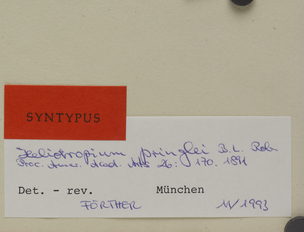 SYNTYPUS
Heliotropium pringlei B. L. Rob.
Proc. Amer. Acad. Arts 26: 170. 1891
Det. - rev. München
FÖRTHER 1993